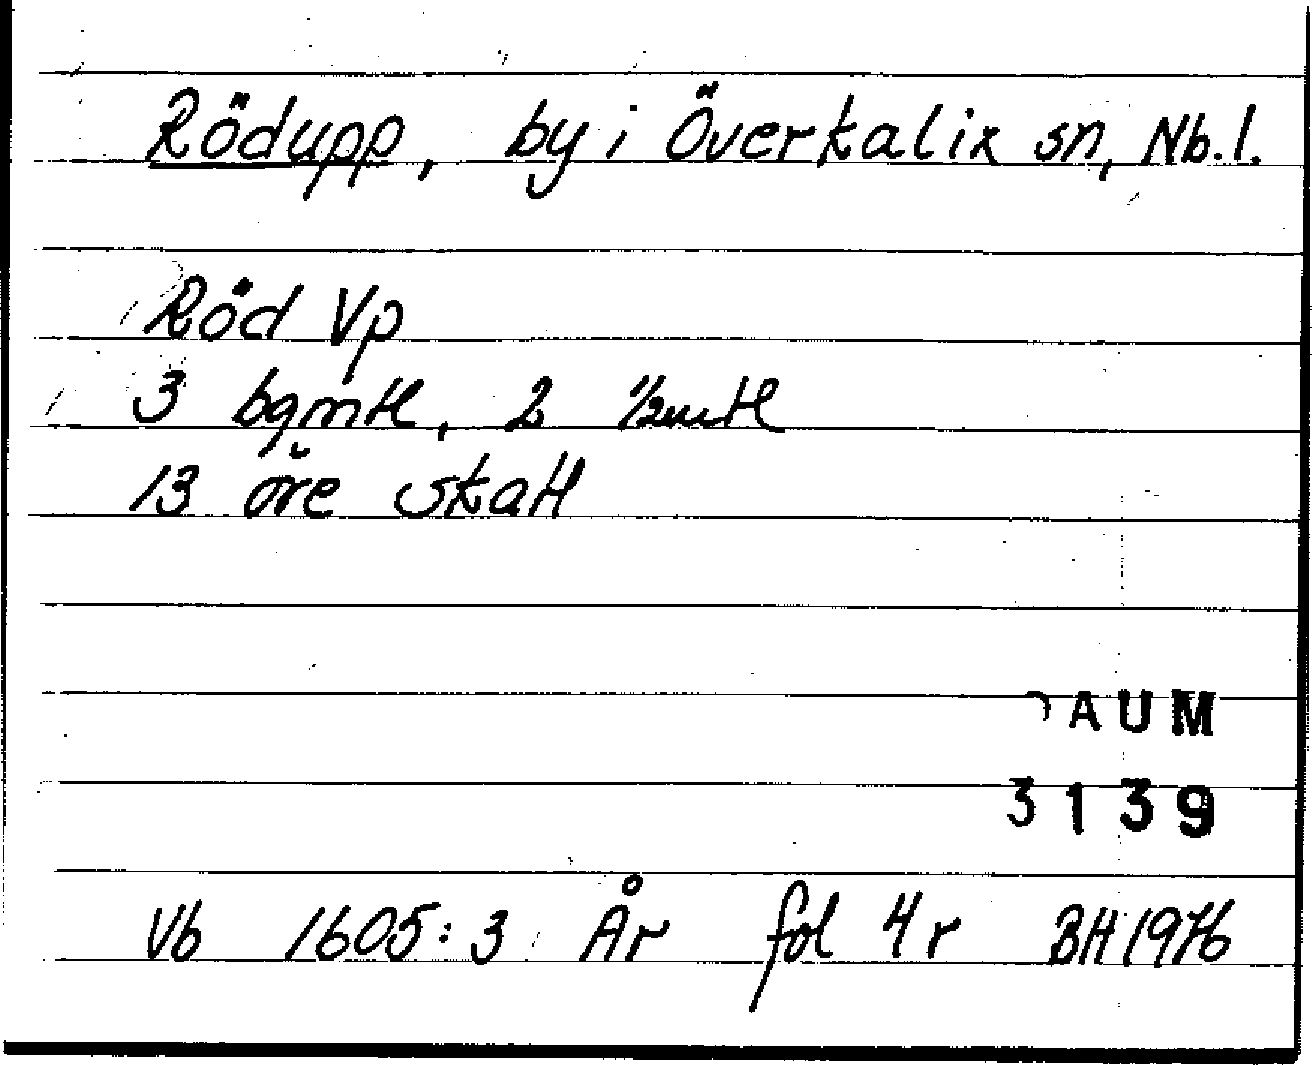 Rödupp, by i Överkalix sn, Nb.l.
Röd Vp
3 bgmtl, 2 ½mtl
13 öre skatt
AUM
3139
Vb 1605:3 År fol 4r BH 1976